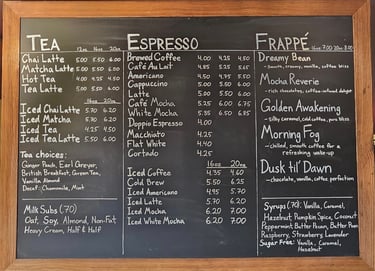 TEA 12oz 16oz 20oz
Chai Latte 5.00 5.50 6.00
Matcha Latte 5.00 5.50 6.00
Hot Tea 4.00 4.25 4.50
Tea Latte 5.00 5.50
16oz 20oz
Iced Chai Latte 5.70 6.20
Iced Matcha 5.70 6.20
Iced Tea 4.25 4.50
Iced Tea Latte 5.50 6.00
Tea choices:
Ginger Peach, Earl Greyer,
British Breakfast, Green Tea,
Vanilla Almond
Decaf: Chamomile, Mint
Milk Subs (.70)
Oat, Soy, Almond, Non-Fat
Heavy Cream, Half & Half
ESPRESSO
Brewed Coffee 4.00 4.25 4.50
Café Au Lait
Americano
Cappuccino 5.00 5.50 6.00
Latte 5.00 5.50 6.00
Café Mocha 5.25 6.00 6.75
White Mocha
Doppio Espresso 4.00
Macchiato 4.25
Flat White 4.40
Cortado 4.25
16oz 20oz
Iced Coffee 4.35 4.60
Cold Brew 5.50 6.25
Iced Americano 4.95 5.70
Iced Latte 5.70 6.20
Iced Mocha 6.20 7.00
Iced White Mocha 6.20 7.00
FRAPPÉ 16oz 7.00 20oz 8.00
Dreamy Bean
- smooth, creamy, vanilla, coffee bliss
Mocha Reverie
- rich chocolatey, coffee infused delight
Golden Awakening
- silky caramel, cold coffee, pure bliss
Morning Fog
- chilled, smooth coffee for a
refreshing wake-up
Dusk til' Dawn
- chocolate, vanilla, coffee perfection
Syrups (.70): Vanilla, Caramel,
Hazelnut, Pumpkin Spice, Coconut
Peppermint, Butter Pecan, Butter Rum
Raspberry, Strawberry, Lavender
Sugar Free: Vanilla, Caramel,
Hazelnut